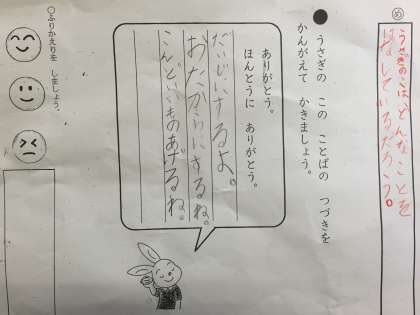 め
うさぎのこは、どんなことを
はなしているだろう。
●うさぎの この ことばの つづきを
かんがえて かきましょう。
ありがとう。
ほんとうに ありがとう。
だいじにするよ。
おたからにするね。
こんどいいものあげるね。
○ふりかえりを しましょう。